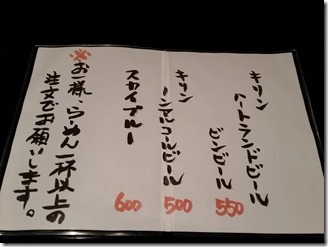 キリン
ハートランドビール
ビンビール
550
キリン
ノンアルコールビール
500
スカイブルー
600
※お一様、らーめん一杯以上の
注文でお願いします。